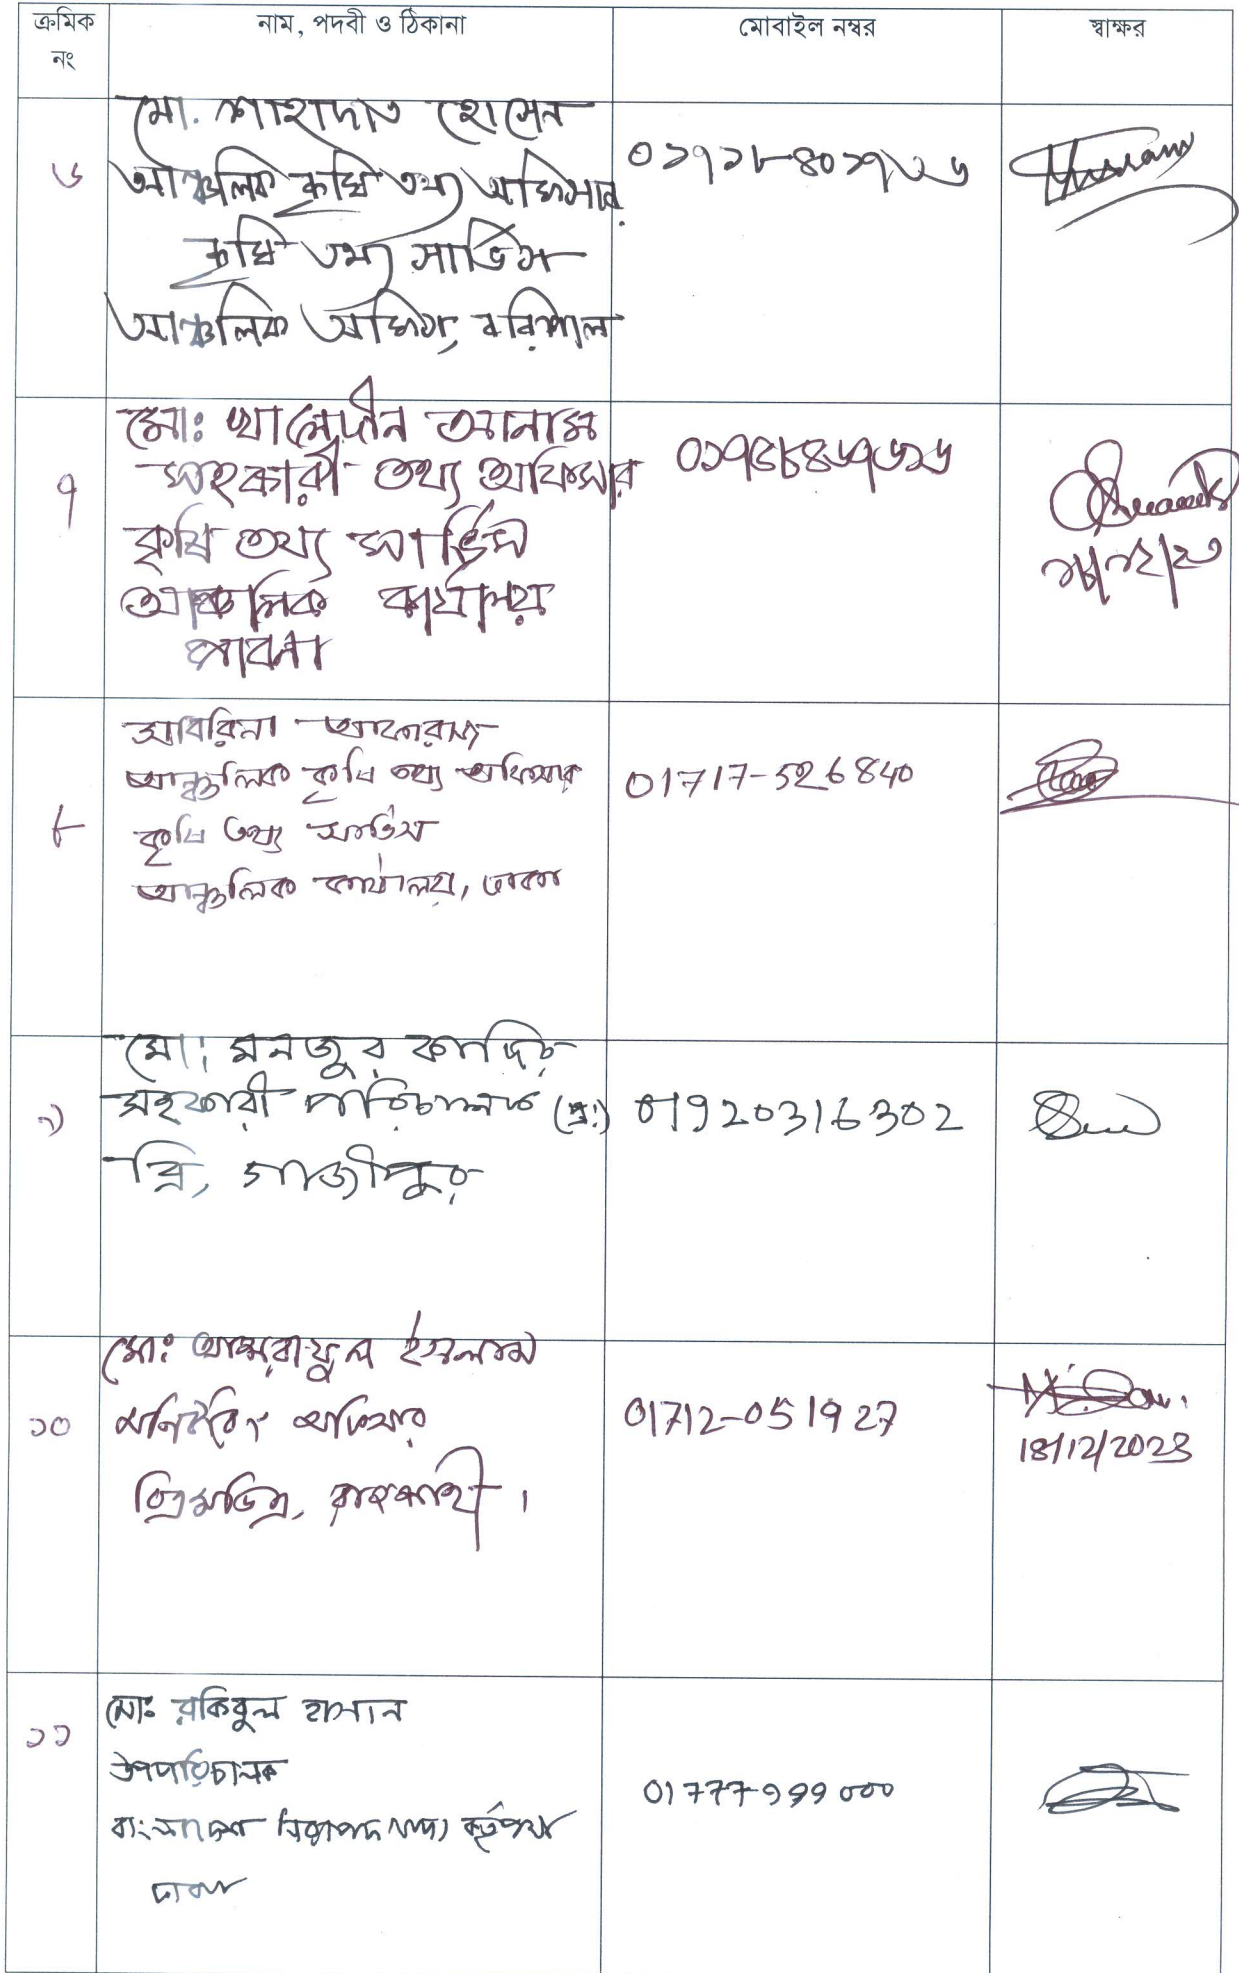 ক্রমিক নং
নাম, পদবী ও ঠিকানা
মোবাইল নম্বর
স্বাক্ষর
৬
মো. শাহাদাত হোসেন
আঞ্চলিক কৃষি তথ্য অফিসার
কৃষি তথ্য সার্ভিস
আঞ্চলিক অফিস, বরিশাল
৭
মোঃ খালেদীন আনাম
সহকারী তথ্য অফিসার
কৃষি তথ্য সার্ভিস
আঞ্চলিক কার্যালয়
পাবনা
৮
আঞ্চলিক কৃষি তথ্য অফিসার
কৃষি তথ্য সার্ভিস
আঞ্চলিক কার্যালয়, ঢাকা
01717-526840
৯
মো: মনজুর কাদির
সহকারী পরিচালক (প্র:)
ব্রি, গাজীপুর
01920316302
১০
মোঃ আশরাফুল ইসলাম
মনিটরিং অফিসার
01712-051927
18/12/2023
১১
মোঃ রকিবুল হাসান
উপপরিচালক
বাংলাদেশ নিরাপদ খাদ্য কর্তৃপক্ষ
ঢাকা
01777999000